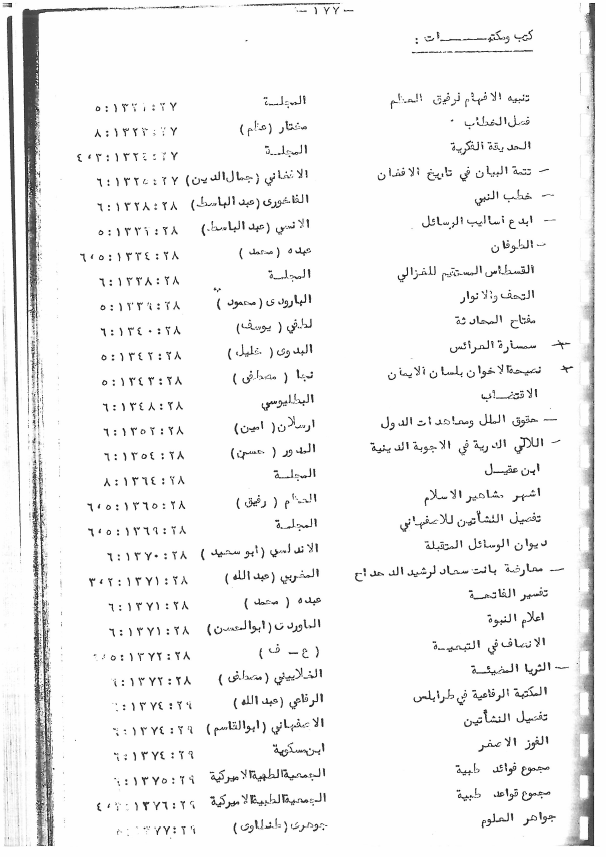 - ١٧٧ -
كتب ومكتبـــــــات :
تنبيه الافهام لرفيق العظم المجلسة ٥:١٣٢١:٢٧
فصل الخطاب مختار (عظم) ٨:١٣٢٢:٢٧
الحديقة الفكرية المجلسة ٤،٣:١٣٢٤:٢٧
— تتمة البيان في تاريخ الافغان الافغاني (جمال الدين) ٦:١٣٢٥:٢٧
— خطب النبي الفاخورى (عبد الباسط) ٦:١٣٢٨:٢٨
— ابدع اساليب الرسائل الانسي (عبد الباسط) ٥:١٣٣١:٢٨
— الطوفان عبده (محمد) ٦،٥:١٣٣٤:٢٨
القسطاس المستقيم للغزالي المجلسة ٦:١٣٣٨:٢٨
التحف والانوار البارودى (محمود) ٥:١٣٣٩:٢٨
مفتاح المحادثة لطفي (يوسف) ٦:١٣٤٠:٢٨
سمسارة العرائس البدوى (خليل) ٥:١٣٤٢:٢٨
نصيحة الاخوان بلسان الايمان نجا (مصطفى) ٥:١٣٤٣:٢٨
الاقتضاب البطليوسي ٦:١٣٤٨:٢٨
— حقوق الملل ومعاهدات الدول ارسلان (امين) ٦:١٣٥٢:٢٨
— اللآلي الدرية في الاجوبة الدينية المدور (حسين) ٦:١٣٥٤:٢٨
ابن عقيـل المجلسة ٨:١٣٦٤:٢٨
اشهر مشاهير الاسلام العظم (رفيق) ٦،٥:١٣٦٥:٢٨
تفصيل النشأتين للاصفهاني المجلسة ٦،٥:١٣٦٩:٢٨
ديوان الوسائل المتقبلة الاندلسي (ابو سعيد) ٦:١٣٧٠:٢٨
— معارضة بانت سعاد لرشيد الدحداح المغربي (عبد الله) ٣،٢:١٣٧١:٢٨
تفسير الفاتحة عبده (محمد) ٦:١٣٧١:٢٨
اعلام النبوة الماوردى (ابو الحسن) ٦:١٣٧١:٢٨
الانصاف في التبعيـة (ع – ف) ١٣٧٢:٢٨
— الثريا المضيئـة الغلاييني (مصطفى) ١٣٧٢:٢٨
المكتبة الرفاعية في طرابلس الرفاعي (عبد الله) ٦:١٣٧٤:٢٩
تفصيل النشأتين الاصفهاني (ابو القاسم) ٦:١٣٧٤:٢٩
الفوز الاصغر ابن مسكوية ٦:١٣٧٤:٢٩
مجموع فوائد طبية الجمعية الطبية الاميركية ٦:١٣٧٥:٢٩
مجموع قواعد طبية الجمعية الطبية الاميركية ١٣٧٦:٢٩
جواهر العلوم جوهرى (طنطاوى) ١٣٧٧:٢٩